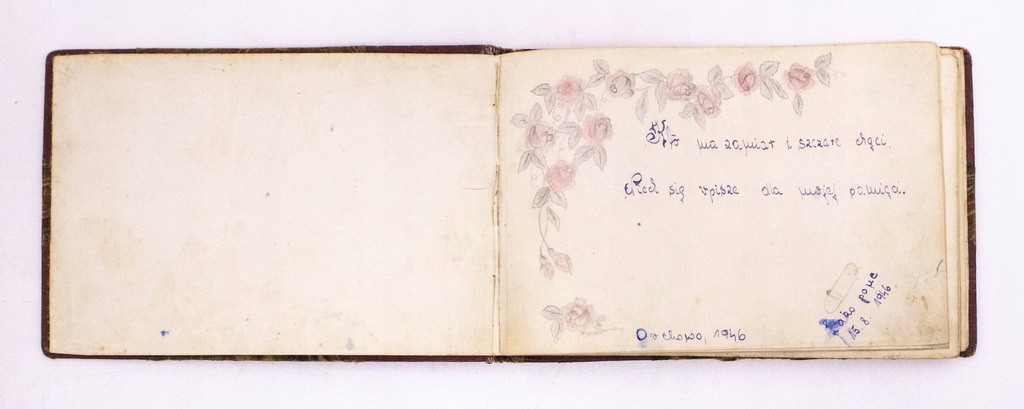 Kto ma zamiar i szczere chęci
Niech się wpisze dla mojej pamięci.
Orchowo, 1946
15. 8. 1946